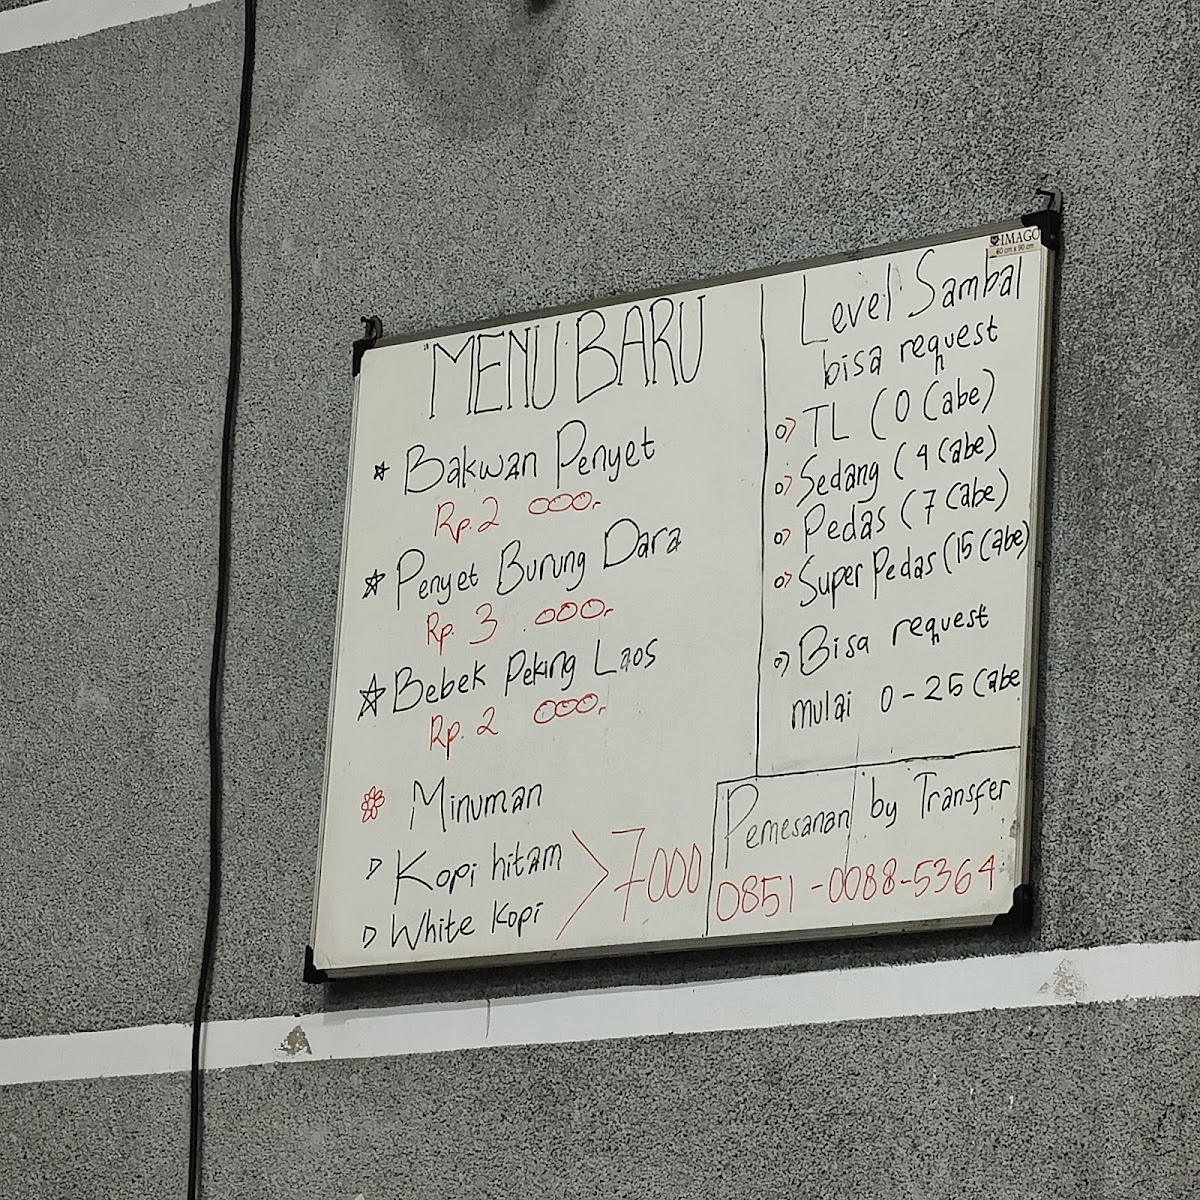 "MENU BARU
Bakwan Penyet
Rp. 2 000,-
Penyet Burung Dara
Rp. 3 .000,-
Bebek Peking Laos
Rp. 2 000,-
Minuman
Kopi hitam
White Kopi
7000
IMAGO
60 cm x 90 cm
Level Sambal
bisa request
TL (0 Cabe)
Sedang (4 Cabe)
Pedas (7 Cabe)
Super Pedas (15 Cabe)
Bisa request
mulai 0-25 Cabe
Pemesanan by Transfer
0851-0088-5364